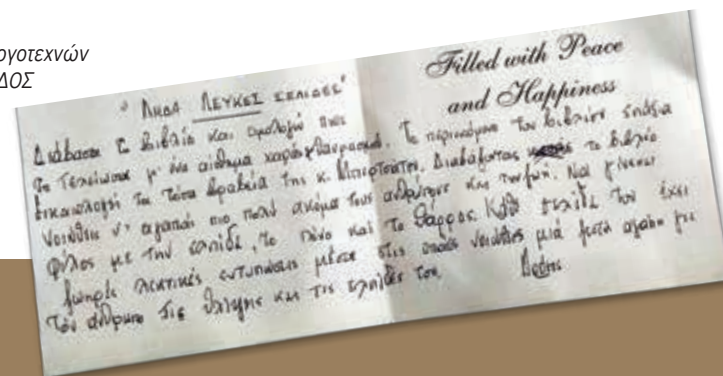 ογοτεχνών
ΔΟΣ
Filled with Peace
and Happiness
ΛΕΥΚΕΣ ΣΕΛΙΔΕΣ
Διάβασα το βιβλίο και ομολογώ πως
το τελείωσα μ' ένα αίσθημα χαράς Το περιεχόμενο του βιβλίου επάξια
δικαιολογεί τα τόσα βραβεία της κ. Διαβάζοντας το βιβλίο
νοιώθεις ν' αγαπάς πιο πολύ ακόμα τους ανθρώπους και την ζωή. Να γίνεσαι
φίλος με την ελπίδα, το πόνο και το θάρρος. Κάθε σελίδα του έχει
λεκτικές εντυπώσεις μέσα στις οποίες νοιώθεις μιά αγάπη για
τον άνθρωπο τις και τις ελπίδες του.